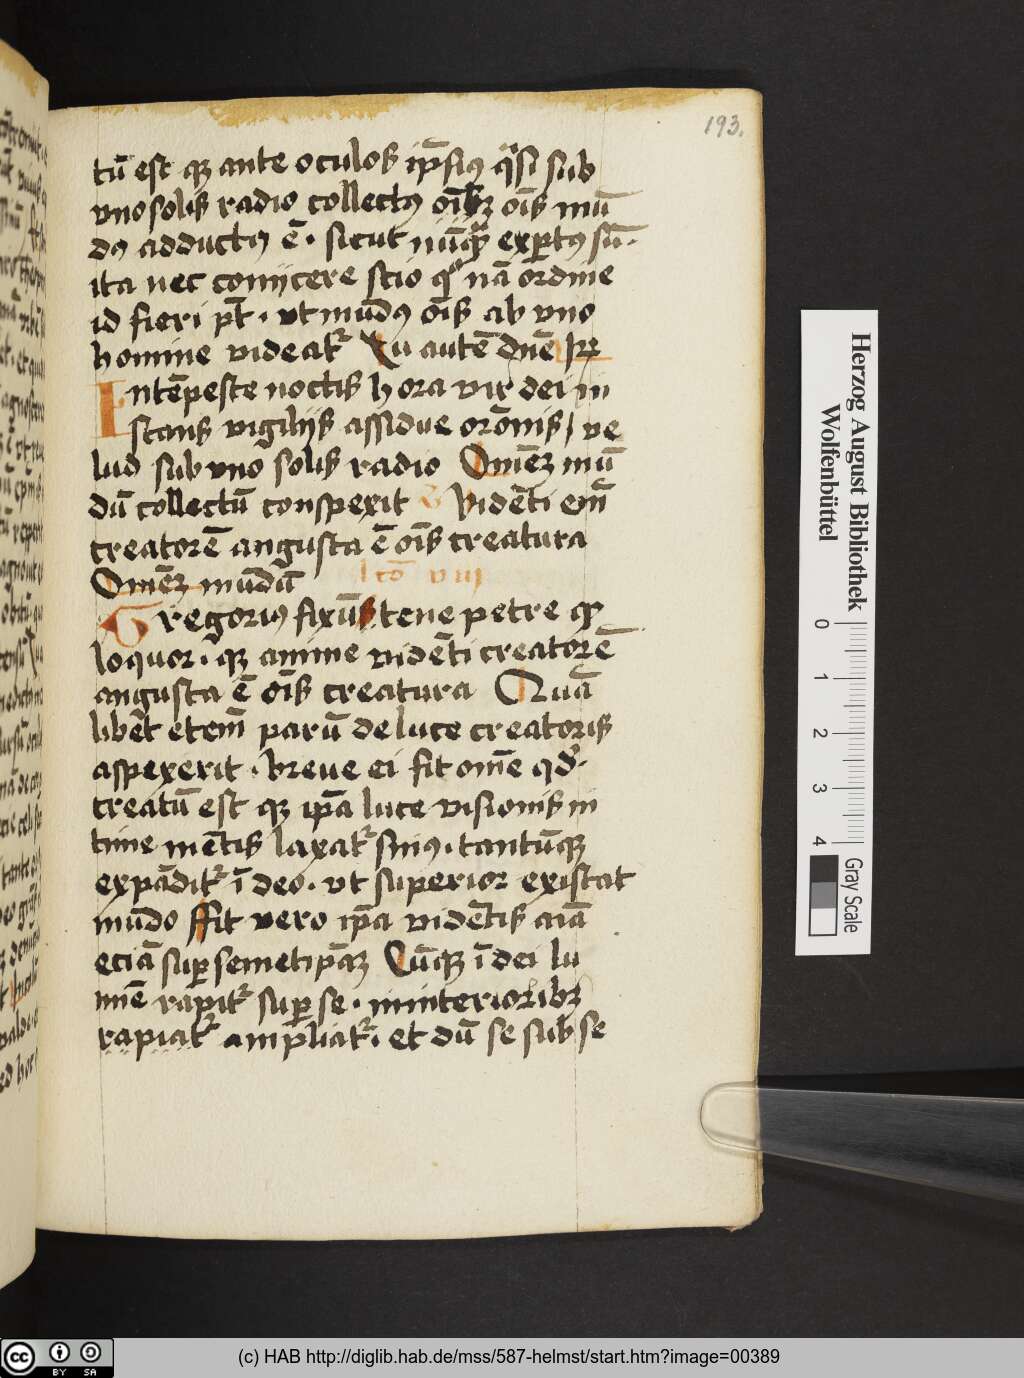 193.
tū est qz ante oculos ip̄siꝰ qͣsi sub
vno solis radio collectꝰ oībꝫ oīs mū
dꝰ adductꝰ ē · sicut nūqͣ exp̄tꝰ sū ·
ita nec conijcere scio qͦ nā ordine
id fieri pt̄ · vt mūdꝰ oīs ab vno
homine videatᷣ Tu autē dn̄e
Intēpeste noctis hora vir dei in
stans vigilijs assidue orōnis / ve
lud sub vno solis radio Omēꝫ mū
dū collectū conspexit V Vidēti em̄
creatorē angusta ē oīs creatura
Omēꝫ mūdū lcō viij
Gregoriꝰ fixū tene petre qͩ
loquor · qz anime vidēti creatorē
angusta ē oīs creatura Quā
libꝫ etem̄ parū de luce creatoris
aspexerit · breue ei fit om̄e qd̓ ·
creatū est qz ip̄a luce visionis in
time mētis laxatᷣ sinꝰ · tantūqꝫ
expāditᷣ ī deo · vt superior existat
mūdo ffit vero ip̄a vidētis aīa
eciā suꝑ semetip̄aꝫ Cūqꝫ ī dei lu
mīe rapitᷣ suꝑ se · in interioribꝫ
rapiatᷣ ampliatᷣ · et dū se sub se
Herzog August Bibliothek
Wolfenbüttel
0 1 2 3 4
Gray Scale
cc BY SA
(c) HAB http://diglib.hab.de/mss/587-helmst/start.htm?image=00389